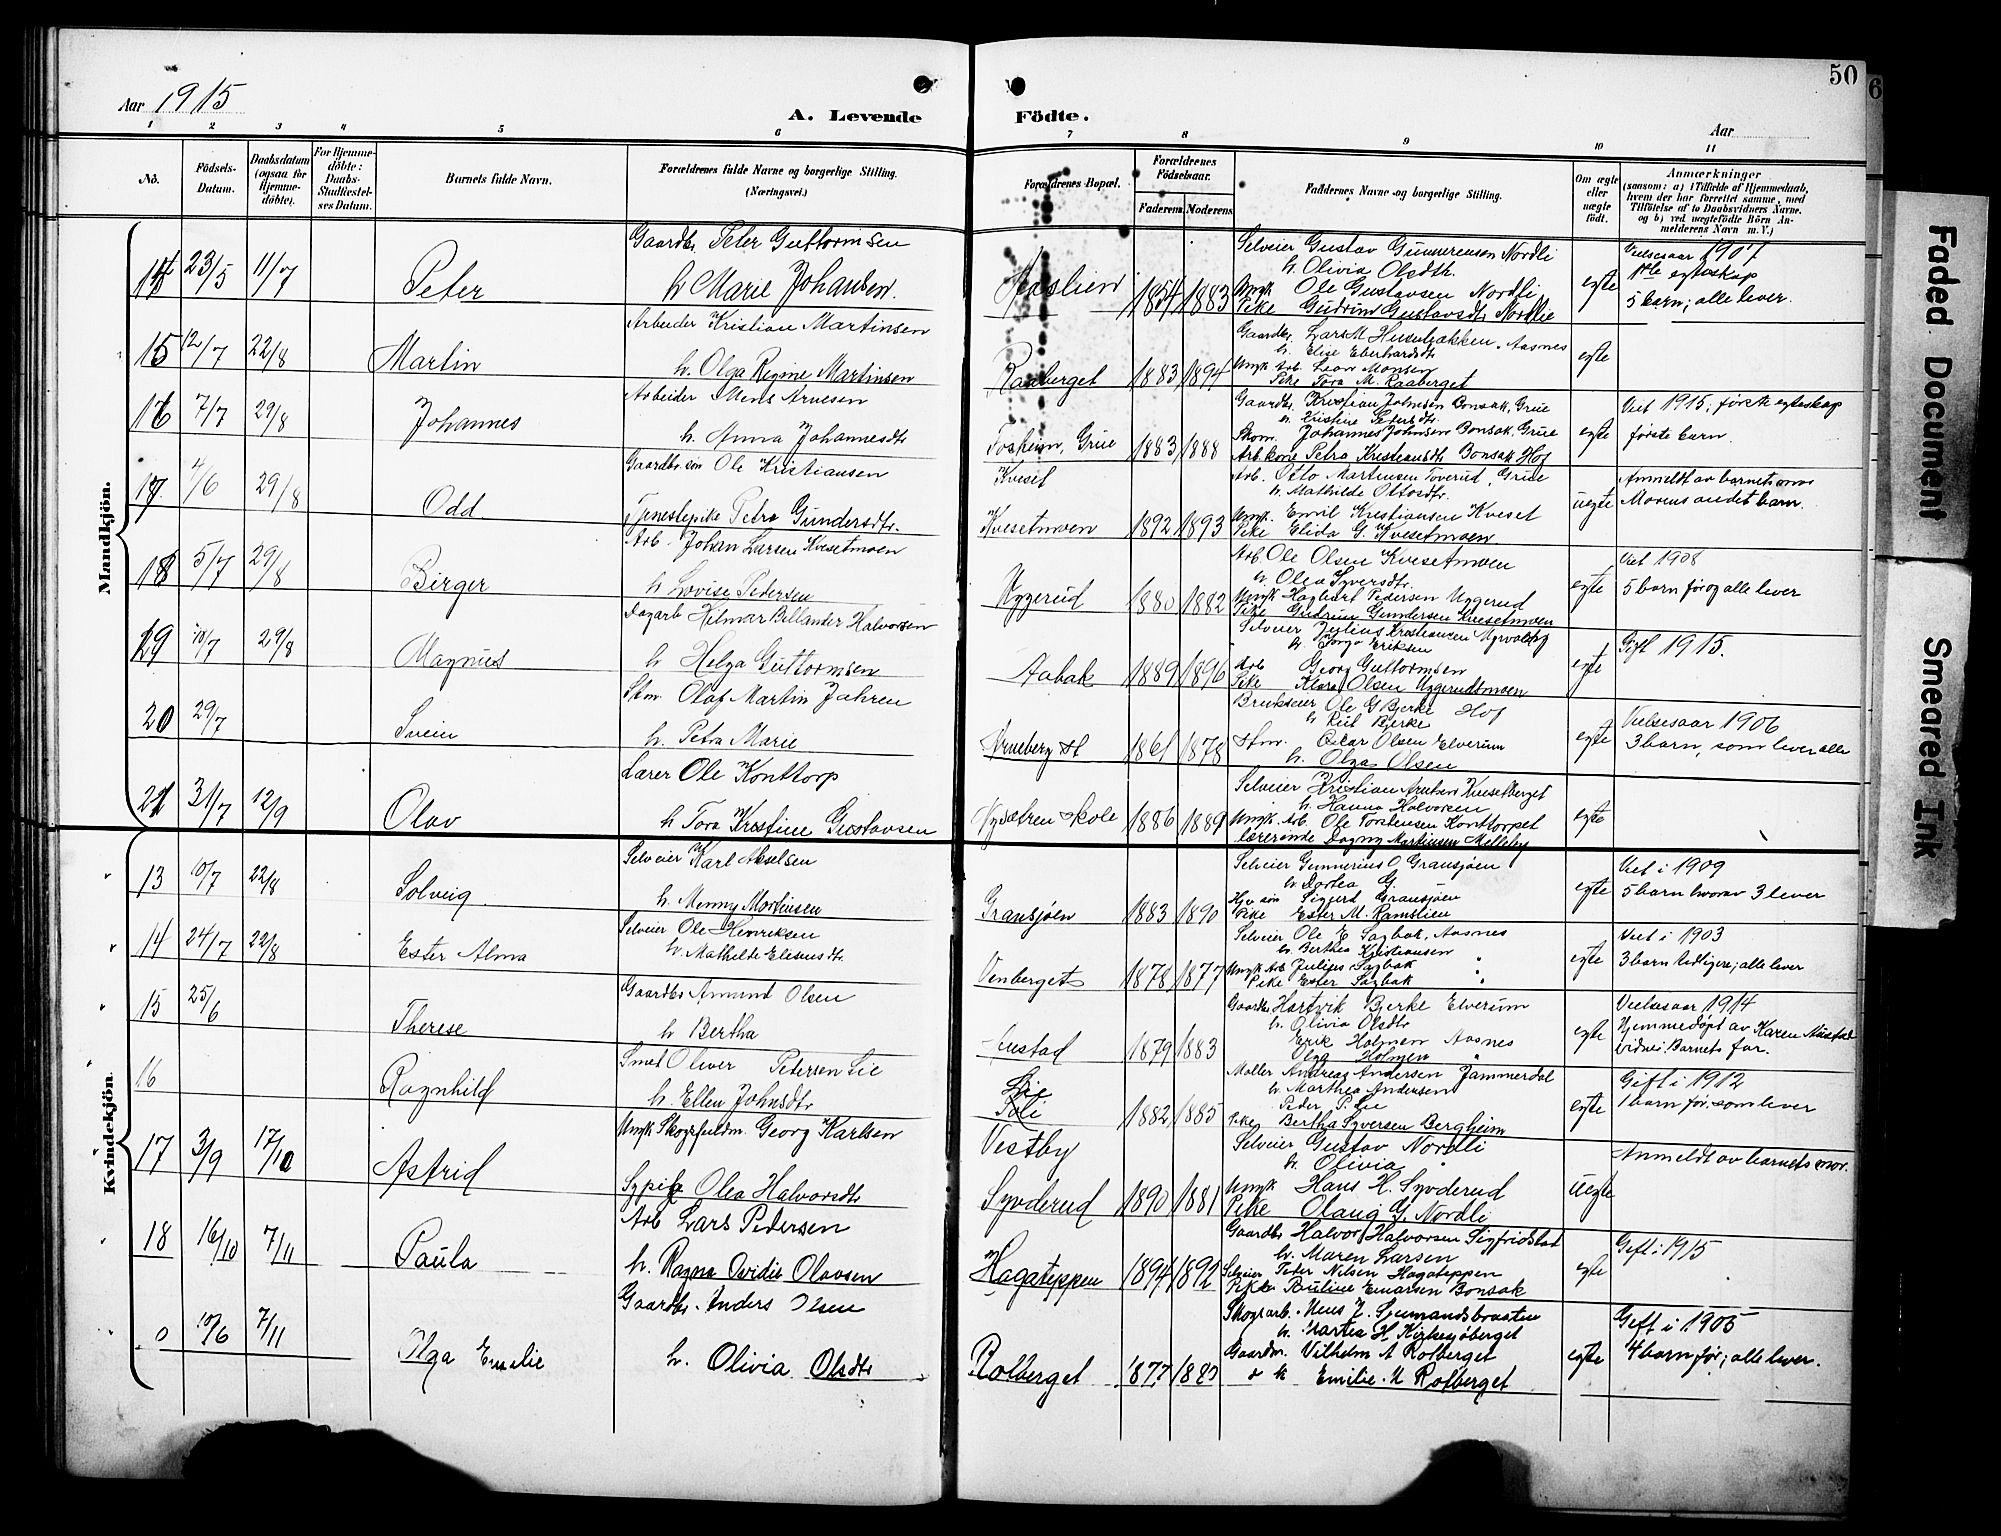 Aar 1915
A. Levende
Födte.
50
Aar
1 2 3 4 5 6 7 8 9 10 11
No.
Födsels-
Datum.
Daabsdatum
(ogsaa for
Hjemme-
döbte).
For Hjemme-
döbte:
Daabs-
Stadfæstel-
ses Datum.
Barnets fulde Navn.
Forældrenes fulde Navne og borgerlige Stilling.
(Næringsvei.)
Forældrenes Bopæl.
Forældrenes
Födselsaar.
Faderens Moderens
Faddernes Navne og borgerlige Stilling.
Om ægte
eller
uægte
födt.
Anmærkninger
(saasom: a) i Tilfælde af Hjemmedaab,
hvem der har forrettet samme, med
Tilföielse af to Daabsvidners Navne.
og b) ved uægtefödte Börn An-
melderens Navn m. V.)
Mandkjön.
14 23/5 11/7 Peter
Gaardbr. Peter Guttormsen
h. Marie Johansen.
Haslien 1854 1883
Selveier Gustav Gunnerenson Nordli
h. Olivia Olsdtr.
Ungk Ole Gustavsen Nordli
Pike Gudrun Gustavsdtr Nordlie
egte
Vielsesaar 1907
1ste egteskap
5 barn; alle lever.
15 12/7 22/8 Martin
Arbeider Kristian Martinsen
h. Olga Regine Martinsen
Raaberget 1883 1894
Gaardbr. Lars M Husubækken. Aasnes
h. Elise Eberhardsdtr
Ungk Arb. Leon Monsen
Pike Tora M. Raaberget
egte
16 7/7 29/8 Johannes
Arbeider Mens Arnesen
h. Anna Johannesdtr
Fosheim, Grue 1883 1888
Gaardbr. Kristian Johnsen Bonsak, Grue
h. Kristine Petersdtr
Skom. Johannes Johnsen Bonsak, Grue
Arb.kone Petra Kristiansdtr Bonsak Hof
egte
Viet 1915; første egteskap
første barn.
17. 4/6 29/8 Odd
Gaardbr.søn Ole Kristiansen
Tjenestepike Petra Gundersdtr.
Kveset
Kvesetmoen 1892 1893
Arb. Otto Martinsen Toverud, Grue
h. Mathilde Ottosdtr.
Ungk. Emil Kristiansen Kveset
Pike Elida G. Kvesetmoen
uegte
Anmeldt av barnets mor
Morens andet barn.
18 5/7 29/8 Birger
Arb. Johan Larsen Kvesetmoen
h. Lovise Pedersen
Uggerud 1880 1882
Arb. Ole Olsen Kvesetmoen
h. Olea Syversdtr.
Ungk Hagbart Pedersen Uggerud
Pike Gudrun Gundersen Kvesetmoen
egte
Viet 1908
5 barn før og alle lever
19 10/7 29/8 Magnus
Dagarb Hilmar Bellander Halvorsen
h Helga Guttormsen
Aabak 1889 1896
Selveier Julius Kristiansen Myrvold
Arb Georg Guttormsen
Pike Klara Olsen Uggerudmoen
egte
Gift 1915.
20 29/7 Svein
Skm. Olaf Martin Jahren
h. Petra Marie
1861 1878
Brukseier Ole G Bjerke Hof
Hm. Oskar Olsen Elverum
h. Olga Olsen
egte
Vielsesaar 1906
3 barn, som lever alle
21 31/7 12/9 Olav
Lærer Ole Konttorp
h Tora Kristine Gustavsen
Nysætren Skole 1886 1889
Selveier Kristian Arntsen Kvesetberget
h. Hanna Halvorsen
Ungk. Arb. Ole Torstensen Konttorpet
lærerinde Dagny Martinsen Melleby
egte
Kvindekjön.
13 10/7 22/8 Solveig
Selveier Karl Akselsen
h. Menny Mortensen
Gransjøen 1883 1890
Selveier Gunnerius O. Gransjøen
h. Dortea G.
Hjv søn Siggerd Gransjøen
Pike Ester M. Ramslien
egte
Viet i 1909
5 barn hvorav 3 lever
14 24/7 22/8 Ester Alma
Selveier Ole Henriksen
h. Mathilde Eliasdtr.
Venberget 1878 1877
Selveier Ole E Sagbak, Aasnes
h. Berthea Kristiansen
Ungk Arb Julius Sagbak "
Pike Ester Sagbak "
egte
Viet i 1903
3 barn tidligere; alle lever
15 25/6 Therese
Gaardbr Amund Olsen
h Bertha
1879 1883
Gaardbr Hartvik Bjerke Elverum
h. Olivia Olsdtr
Erik Holmen Aasnes
Olga Holmen "
egte
Vielsesaar 1914
Hjemmedøpt av Karen Austad
vidne: Barnets far.
16 Ragnhild
Smed Oliver Pedersen Lie
h. Ellen Johnsdtr
Lie 1882 1885
Møller Andreas Andersen Jammerdal
h. Marthea Andersen
Peder P. Lie
Pike Bertha Syversen Bergheim
egte
Gift i 1912
1 barn før, som lever
17 3/9 17/10 Astrid
Ungk Skogsfuldm. Georg Karlsen
Sypike Olea Halvorsdtr
Vestby
Syvderud 1890 1881
Selveier Gustav Nordli
h. Olivia "
Ungk Hans H. Syvderud
Pike Olaug G. Nordli
uegte
Anmeldt av barnets mor.
18 16/10 7/11 Paula
Arb Lars Pedersen
h. Ragna Ovidie Olavsen
Hagateppen 1894 1892
Gaardbr Halvor Halvorsen Sigfridstad
h. Maren Larsen
Selveier Peter Nilsen Hagateppen
Pike Pauline Einarsen Bonsak
egte
Gift i 1915
10/6 7/11 Olga Emilie
Gaardbr. Anders Olsen
h. Olivia Olsdtr
Rotberget 1877
Skogsarb.
h. Martea H. Kirkesjøberget
Gaardm. Vilhelm A Rotberget
Emilie M Rotberget
egte
Gift i 1905
4 barn før; alle lever.
Faded Document
Smeared Ink